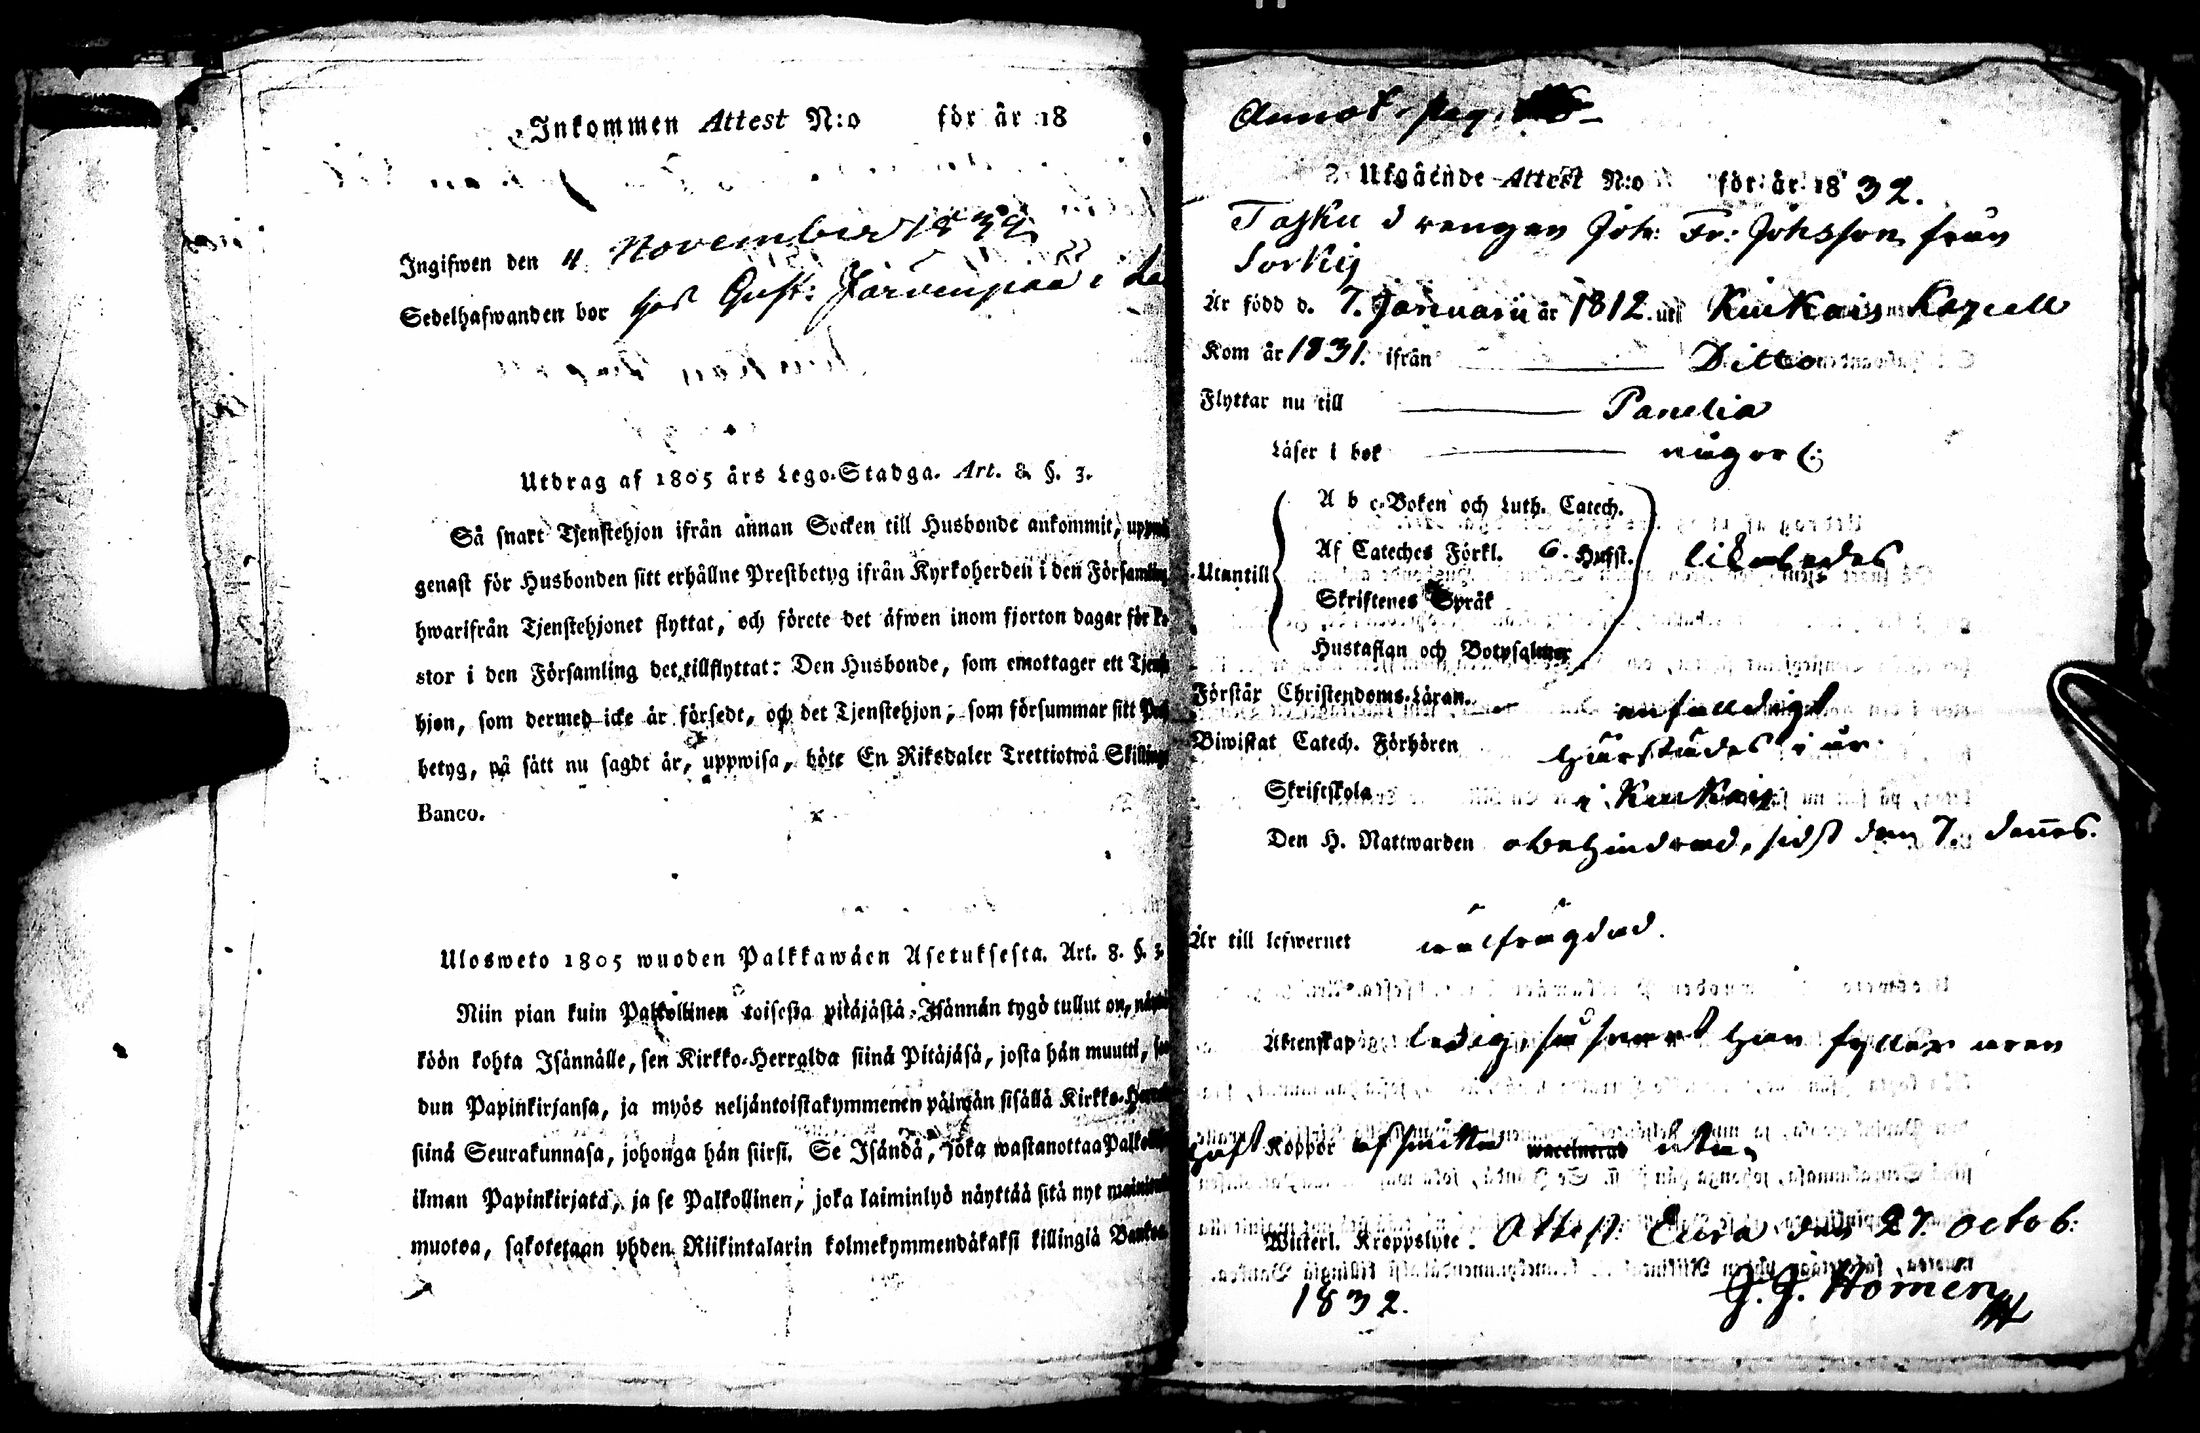 Inkommen Attest N:o för år 18
Ingifwen den 4 November 1832
Sedelhafwanden bor hos Gust: Järvenpää i
Utdrag af 1805 års Lego-Stadga. Art. 8. §. 3.
Så snart Tjenstehjon ifrån annan Socken till Husbonde ankommit,
genast för Husbonden sitt erhållne Prestbetyg ifrån Kyrkoherden i den Församling
hwarifrån Tjenstehjonet flyttat, och förete det äfwen inom fjorton dagar för
stor i den Församling det tillflyttat: Den Husbonde, som emottager ett
hjon, som dermed icke är försedt, och det Tjenstehjon, som försummar sitt
betyg, på sätt nu sagdt är, uppwisa, böte En Riksdaler Trettiotwå
Banco.
Ulosweto 1805 wuoden Palkkawäen Asetuksesta. Art. 8. §. 3.
Niin pian kuin Palkollinen toisesta pitäjästä Isännän tygö tullut on,
köön kohta Isännälle, sen Kirkko-Herralda siinä Pitäjäsä, josta hän muutti,
dun Papinkirjansa, ja myös neljäntoistakymmenen päiwän sisällä Kirkko-
siinä Seurakunnasa, johonga hän siirsi. Se Isändä, joka wastanottaa
ilman Papinkirjata, ja se Palkollinen, joka laiminlyö näyttää sitä nyt
muotoa, sakotetaan yhden Riikintalarin kolmekymmendäkaksi killingiä
Annot. pag.
Utgående Attest N:o för år 1832.
drengen Joh: Fr: Johsson från
Sorkis
Är född d. 7. Januarii år 1812. uti Kiukais Kapell
Kom år 1831. ifrån Ditto
Flyttar nu till Panelia
Läser i bok någorl:
A b c-Boken och Luth. Catech.
Af Cateches Förkl. 6. Hufst. likaledes
Utantill
Skriftenes Språk
Hustaflan och Botpsalmer
Förstår Christendoms-Läran. enfaldigt
Biwistat Catech. Förhören härstädes i år
Skriftskola i Kiukais
Den H. Nattwarden obehindrad, sidst den 7. dennes.
Är till lefwernet wälfrägdad.
Äktenskap ledig, så snart han fyller åren
haft Koppor af smitta waccinerad
Witterl. Kroppslyte. Attest: Eura den 27. Octob:
1832. J. J. Homén